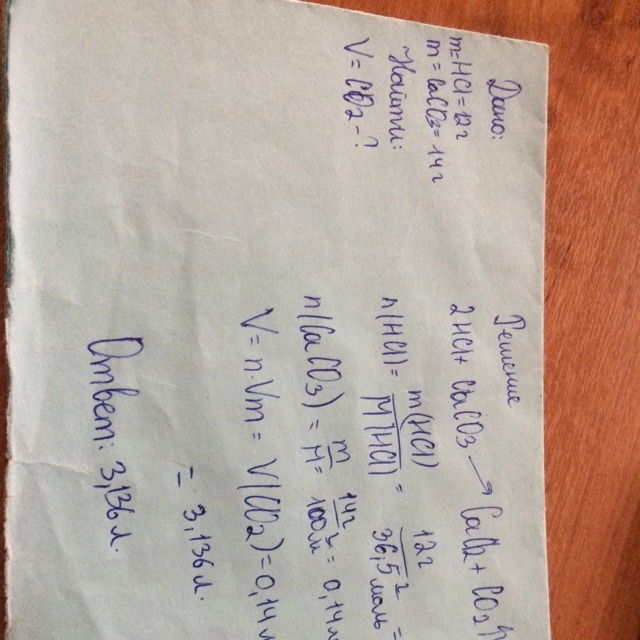 Дано:
m=HCl=12г
m=CaCO3=14г
Найти:
V=CO2-?
Решение
2HCl+ CaCO3 → CaCl2 + CO2↑
n(HCl) = m(HCl) / M(HCl) = 12г / 36,5 г/моль =
n(CaCO3) = m / M = 14г / 100 = 0,14м
V=n·Vm = V(CO2)=0,14м
= 3,136л.
Ответ: 3,136л.